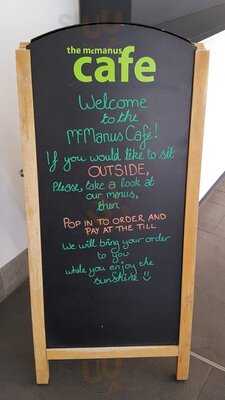 the mcmanus
cafe
Welcome
to the
McManus Cafe!
If you would like to sit
OUTSIDE,
Please, take a look at
our menus,
then
POP IN TO ORDER, AND
PAY AT THE TILL
We will bring your order
to you
while you enjoy the
sunshine